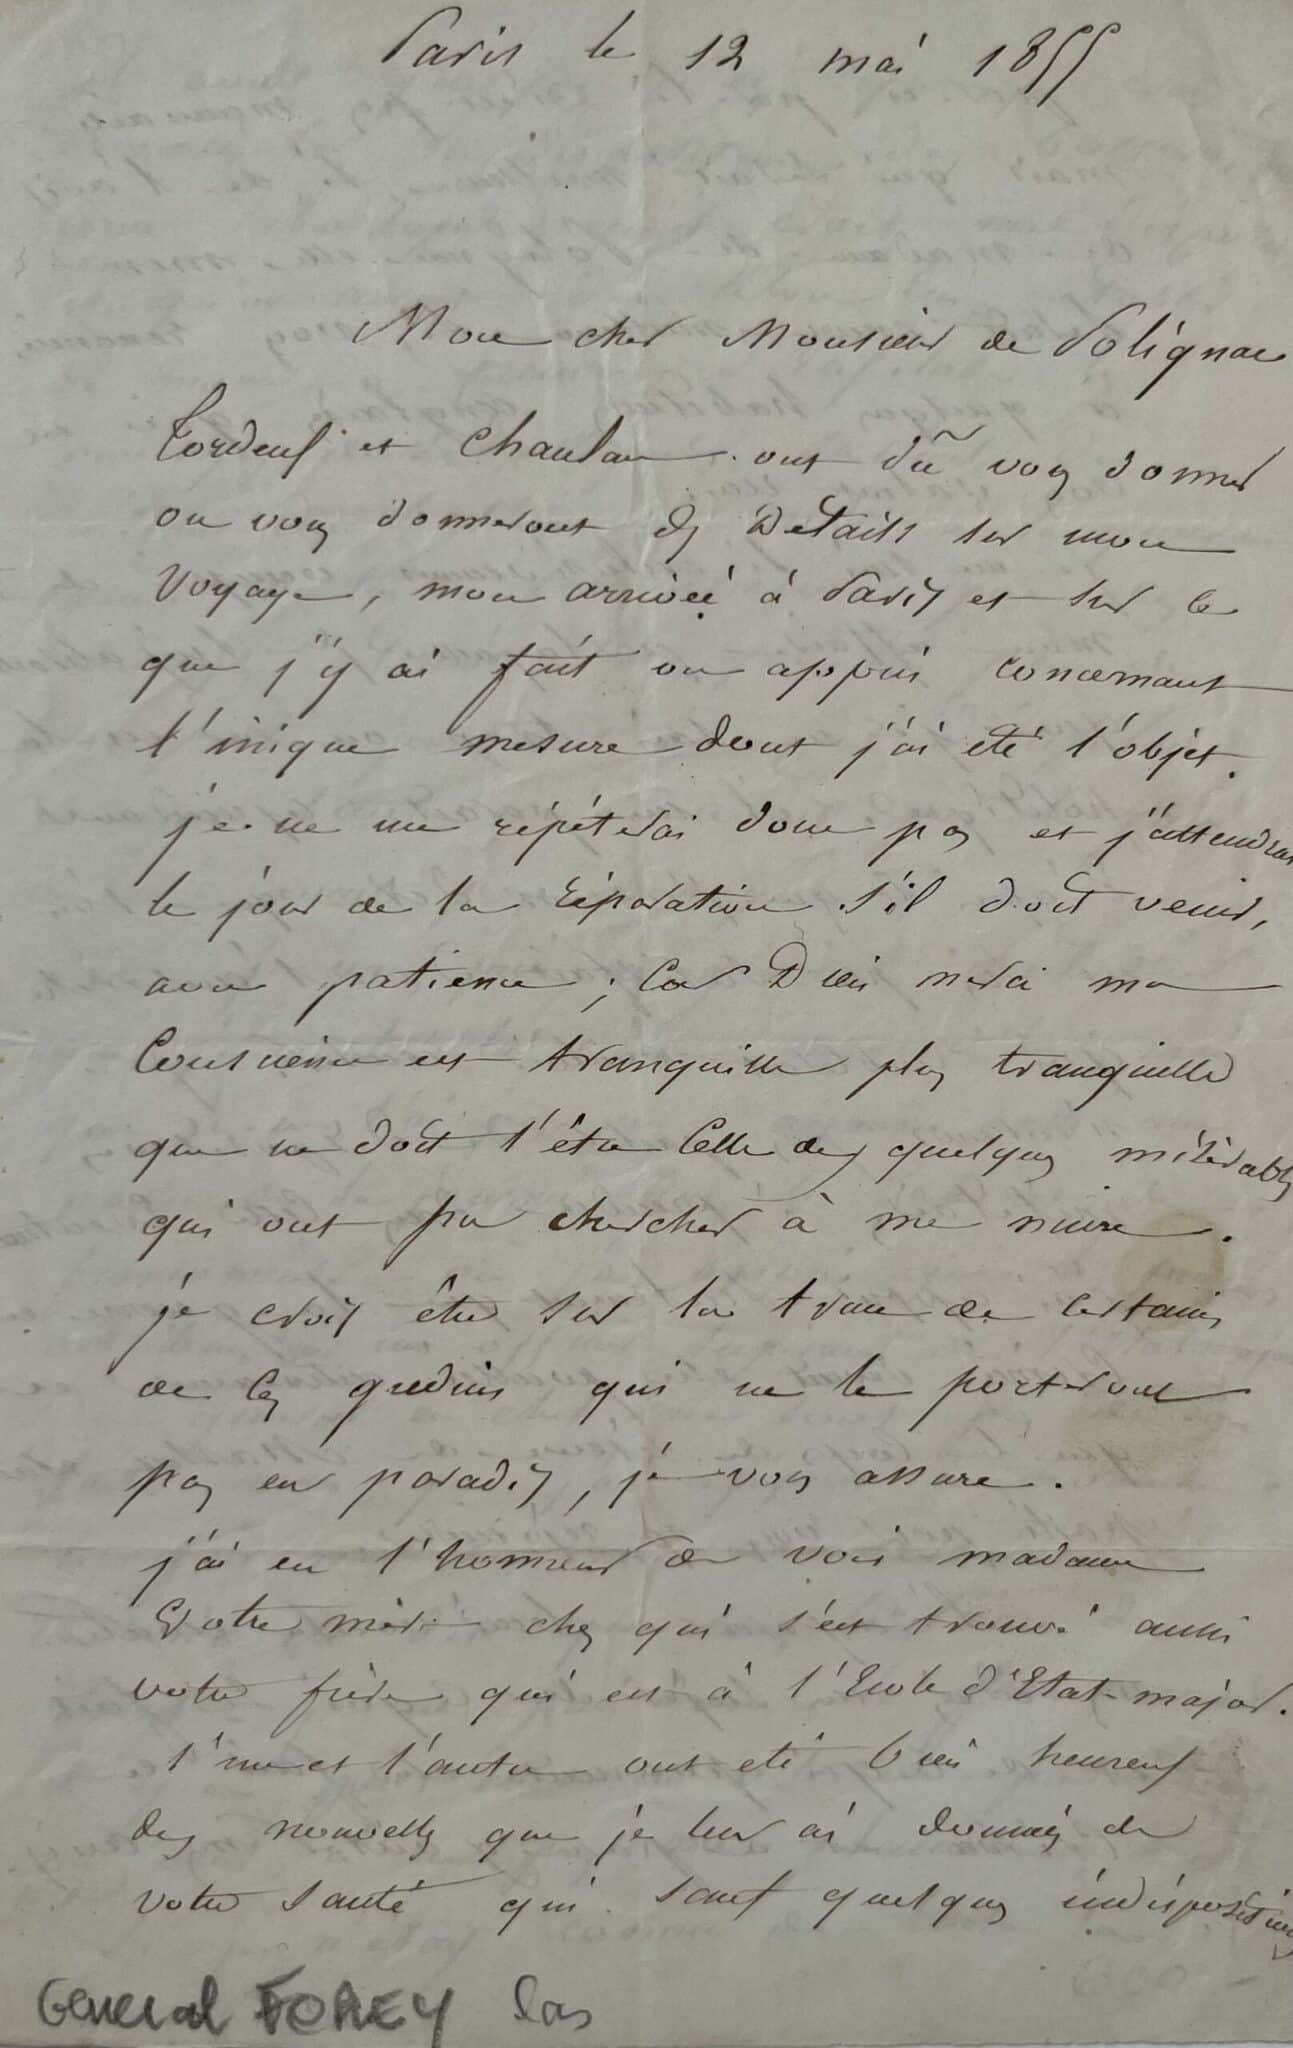 Paris le 12 mai 1855
Mon cher Monsieur de Polignac
et ont dû vous donner
ou vous donneront des Details sur mon
voyage, mon arrivée à Paris et sur ce
que j'y ai fait ou appris concernant
l'inique mesure dont j'ai eté l'objet.
je ne me répéterai donc pas et j'attendrai
le jour de la réparation s'il doit venir,
avec patience ; Car Dieu merci ma
Conscience est tranquille plus tranquille
que ne doit l'être Celle des quelques misérables
qui ont pu chercher à me nuire.
je crois être sur la trace de Certains
de Ces gredins qui ne le porteront
pas en paradis, je vous assure.
j'ai eu l'honneur de voir madame
Votre mère chez qui s'est trouvé aussi
votre frère qui est à l'Ecole d'Etat-major.
l'une et l'autre ont eté bien heureux
des nouvelles que je leur ai données de
votre santé qui sauf quelques indispositions
General FOREY las